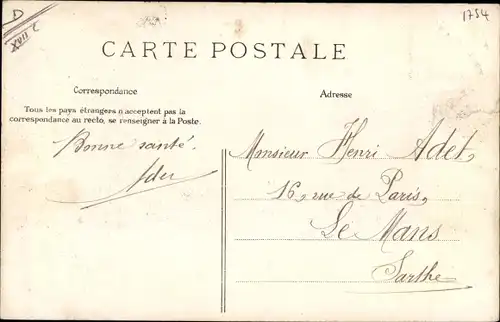 1754
CARTE POSTALE
Correspondance
Tous les pays étrangers n'acceptent pas la
correspondance au recto, se renseigner à la Poste.
Bonne santé.
Adresse
Monsieur Henri Adet,
16, rue de Paris,
Le Mans
Sarthe